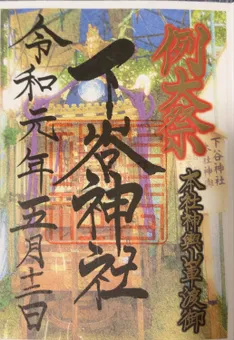 例大祭
本社神輿渡御
下谷神社
下谷神社
令和元年五月十二日